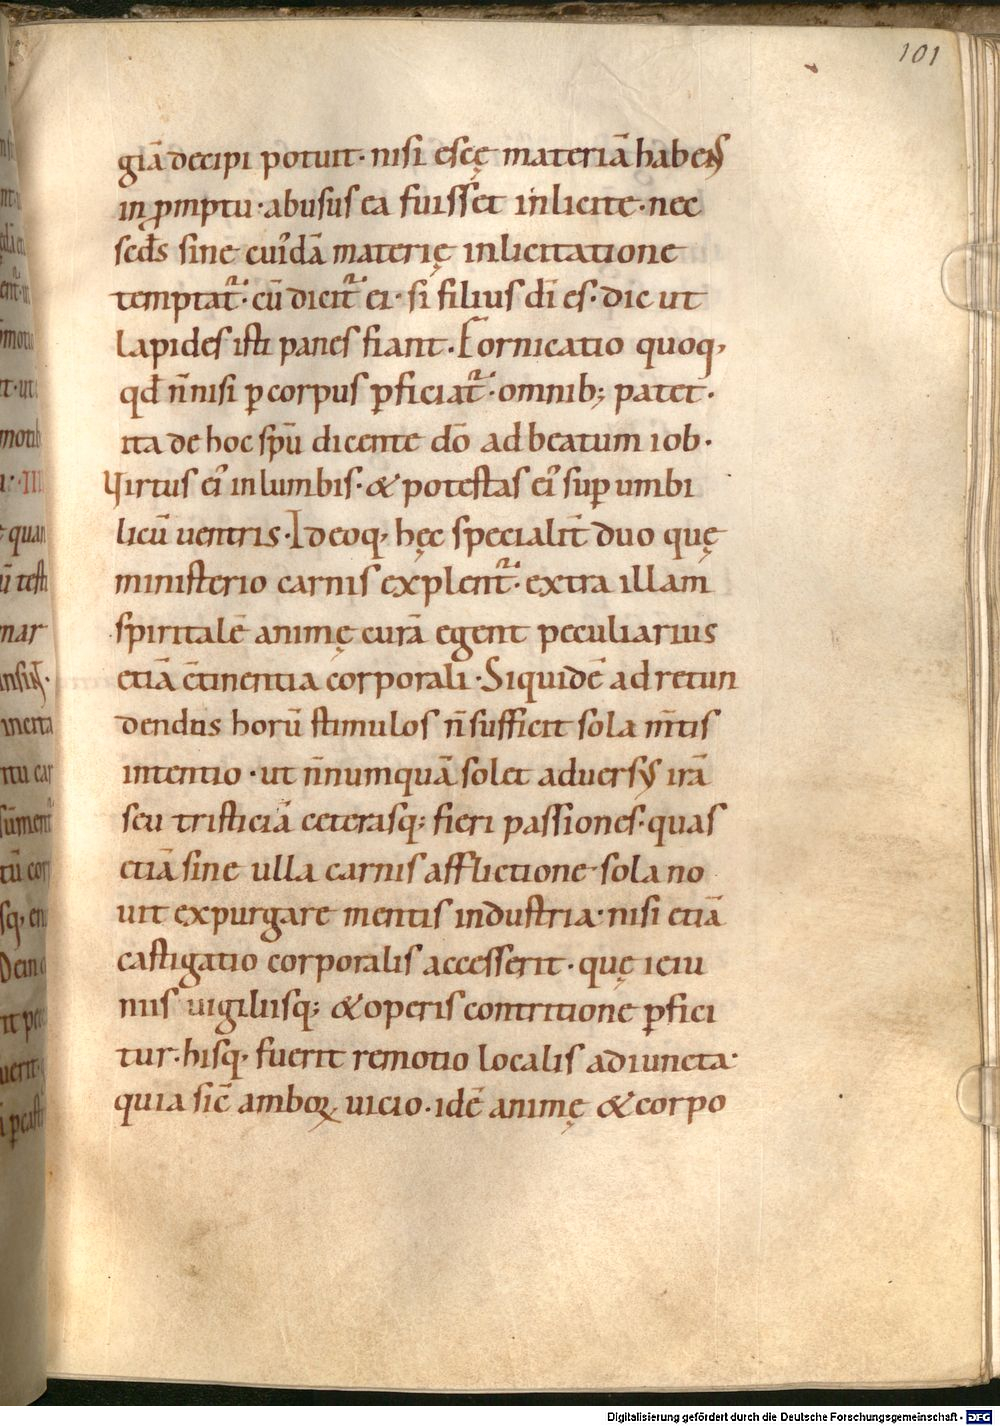 101
giā decipi potuit· nisi escę materiā habens
in p̄mptu· abusus ea fuisset inlicite· nec
scds̄ sine cuidā materię inlicitatione
temptat᷑· cū dicit᷑ ei· si filius dī es· dic ut
lapides isti panes fiant. Fornicatio quoq,
qd̄ n̄nisi ꝑ corpus ꝑficiat᷑· omnib; patet·
ita de hoc sp̄u dicente dō ad beatum iob·
Virtus ei᷑ in lumbis· & potestas ei᷑ suꝑ umbi
licū uentris· Ideoq, hęc specialit̄ duo quę
ministerio carnis explent᷑· extra illam
spiritalē animę curā egent peculiarius
etiā c̄tinentia corporali· Siquidē ad retun
dendos horū stimulos n̄ sufficit sola m̄tis
intentio· ut n̄numquā solet aduersus irā
seu tristiciā ceterasq; fieri passiones· quas
etiā sine ulla carnis afflictione sola no
uit expurgare mentis industria· nisi etiā
castigatio corporalis accesserit· quę ieiu
niis uigiliisq; & operis contritione ꝑfici
tur· hisq, fuerit remotio localis adiuncta·
quia sic̄ amboꝝ uicio· idē animę & corpo
Digitalisierung gefördert durch die Deutsche Forschungsgemeinschaft - DFG